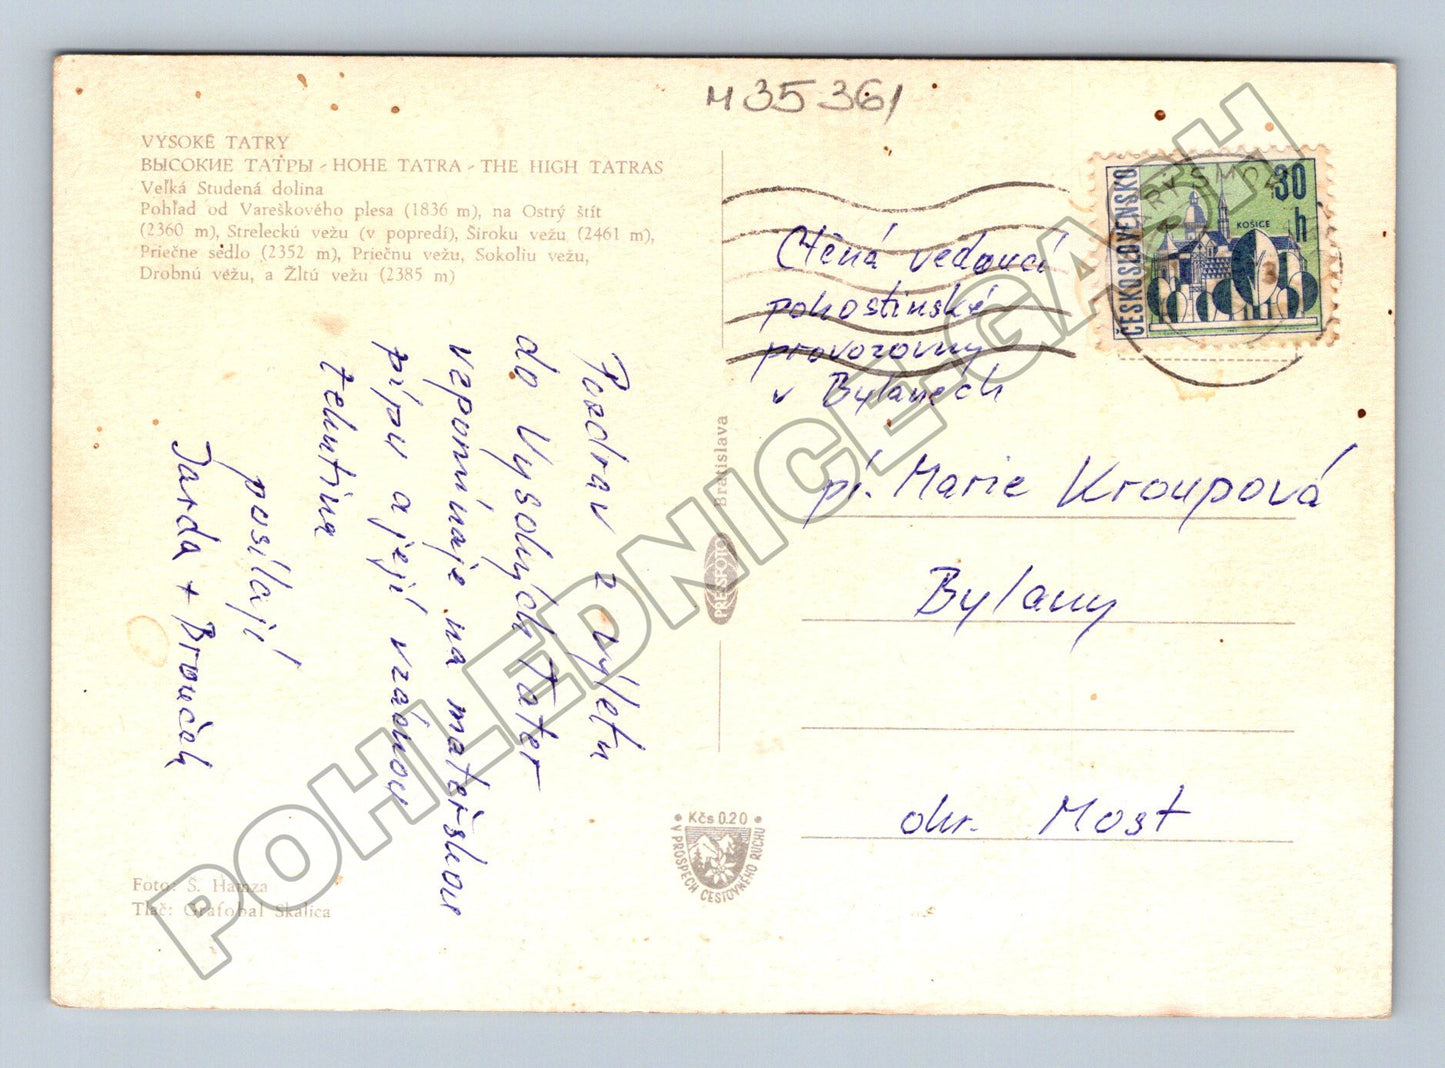 M 35 361
VYSOKÉ TATRY
ВЫСОКИЕ ТАТРЫ - HOHE TATRA - THE HIGH TATRAS
Veľká Studená dolina
Pohľad od Vareškového plesa (1836 m), na Ostrý štít
(2360 m), Streleckú vežu (v popredí), Široku vežu (2461 m),
Priečne sedlo (2352 m), Priečnu vežu, Sokoliu vežu,
Drobnú vežu, a Žltú vežu (2385 m)
Pozdrav z výletu
do Vysokých Tater
vzpomínaje na mateřskou
pípu a její vzácnou
tekutina
posílají
Jarda + Brouček
Foto: Š. Hamza
Tlač: Grafobal Skalica
PRESSFOTO Bratislava
Kčs 0.20
V PROSPECH CESTOVNÉHO RUCHU
ČESKOSLOVENSKO
30 h
KOŠICE
STARÝ SMOK
Ctěná vedoucí
pohostinské
provozovny
v Bylanech
pí. Marie Kroupová
Bylany
okr. Most
POHLEDNICE-GASH